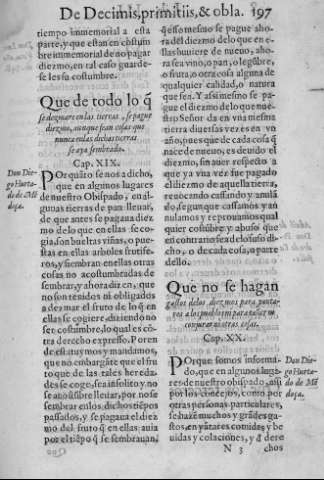 De Decimis, primitiis, & obla. 197
tiempo immemorial a esta
parte, y que estan en costũbre
immemorial de no pagar
diezmo, en tal caso guarde-
se les su costumbre.
Que de todo lo q̃
se dezmare en las tierras, se pague
diezmo, aunque sean cosas que
nunca en las dichas tierras
se aya sembrado.
Cap. XIX.
Don Die-
go Hurta-
do de Mẽ
doça.
Porquãto se nos a dicho,
que en algunos lugares
de nuestro Obispado, en al-
gunas tierras de pan lleuar,
de que antes se pagaua diez
mo de lo que en ellas se co-
gia, son bueltas viñas, o pue-
stas en ellas arboles frutife-
ros, y siembran en ellas otras
cosas no acostumbradas de
sembrar, y ahora dizen, que
no son tenidos ni obligados
a dezmar el fruto de lo que en
ellas se cogiere diziendo no
ser costumbre, lo qual es cõ-
tra derecho expresso. Poren
de estatuymos y mandamos,
que no embargãte que el fru
to que de las tales hereda-
des se coge, sea insolito y no
se acostũbre lleuar, por no se
sembrar en los dichos tiẽpos
passados, y se pagaua el diez
mo del fruto q̃ en ellas auia
por el tiẽpo q̃ se sembrauan,
q̃ esso mesmo se pague aho-
ra del diezmo de lo que en e-
llas huuiere de nueuo, ahora
sea vino, o pan, o legũbre,
o fruta, o otra cosa alguna de
qualquier calidad, o natura
que sea. Y assi mesmo se pa-
gue el diezmo de lo que nue-
stro Señor da en vna mesma
tierra diuersas vezes en vn
año, pues que de cada cosa q̃
nace de nueuo, es deuido el
diezmo, sin auer respecto a
que ya vna vez fue pagado
el diezmo de aquella tierra,
reuocando cassando y anulã
do, segun que cassamos y an
nulamos y reprouamos qual
quier costũbre y abuso que
en contrario sea de lo suso di-
cho, o de cada cosa, o parte
dello.
Que no se hagan
Cap. XX.
Don Die
go Hurta-
do de Mẽ
doça.
Porque somos informa-
do, que en algunos luga-
res de nuestro obispado, assi
por los concejos, como por
otras personas particulares,
se hazẽ muchos y grãdes ga-
stos, en yãtares comidas, y be
uidas y colaciones, y a dere
N 3 chos